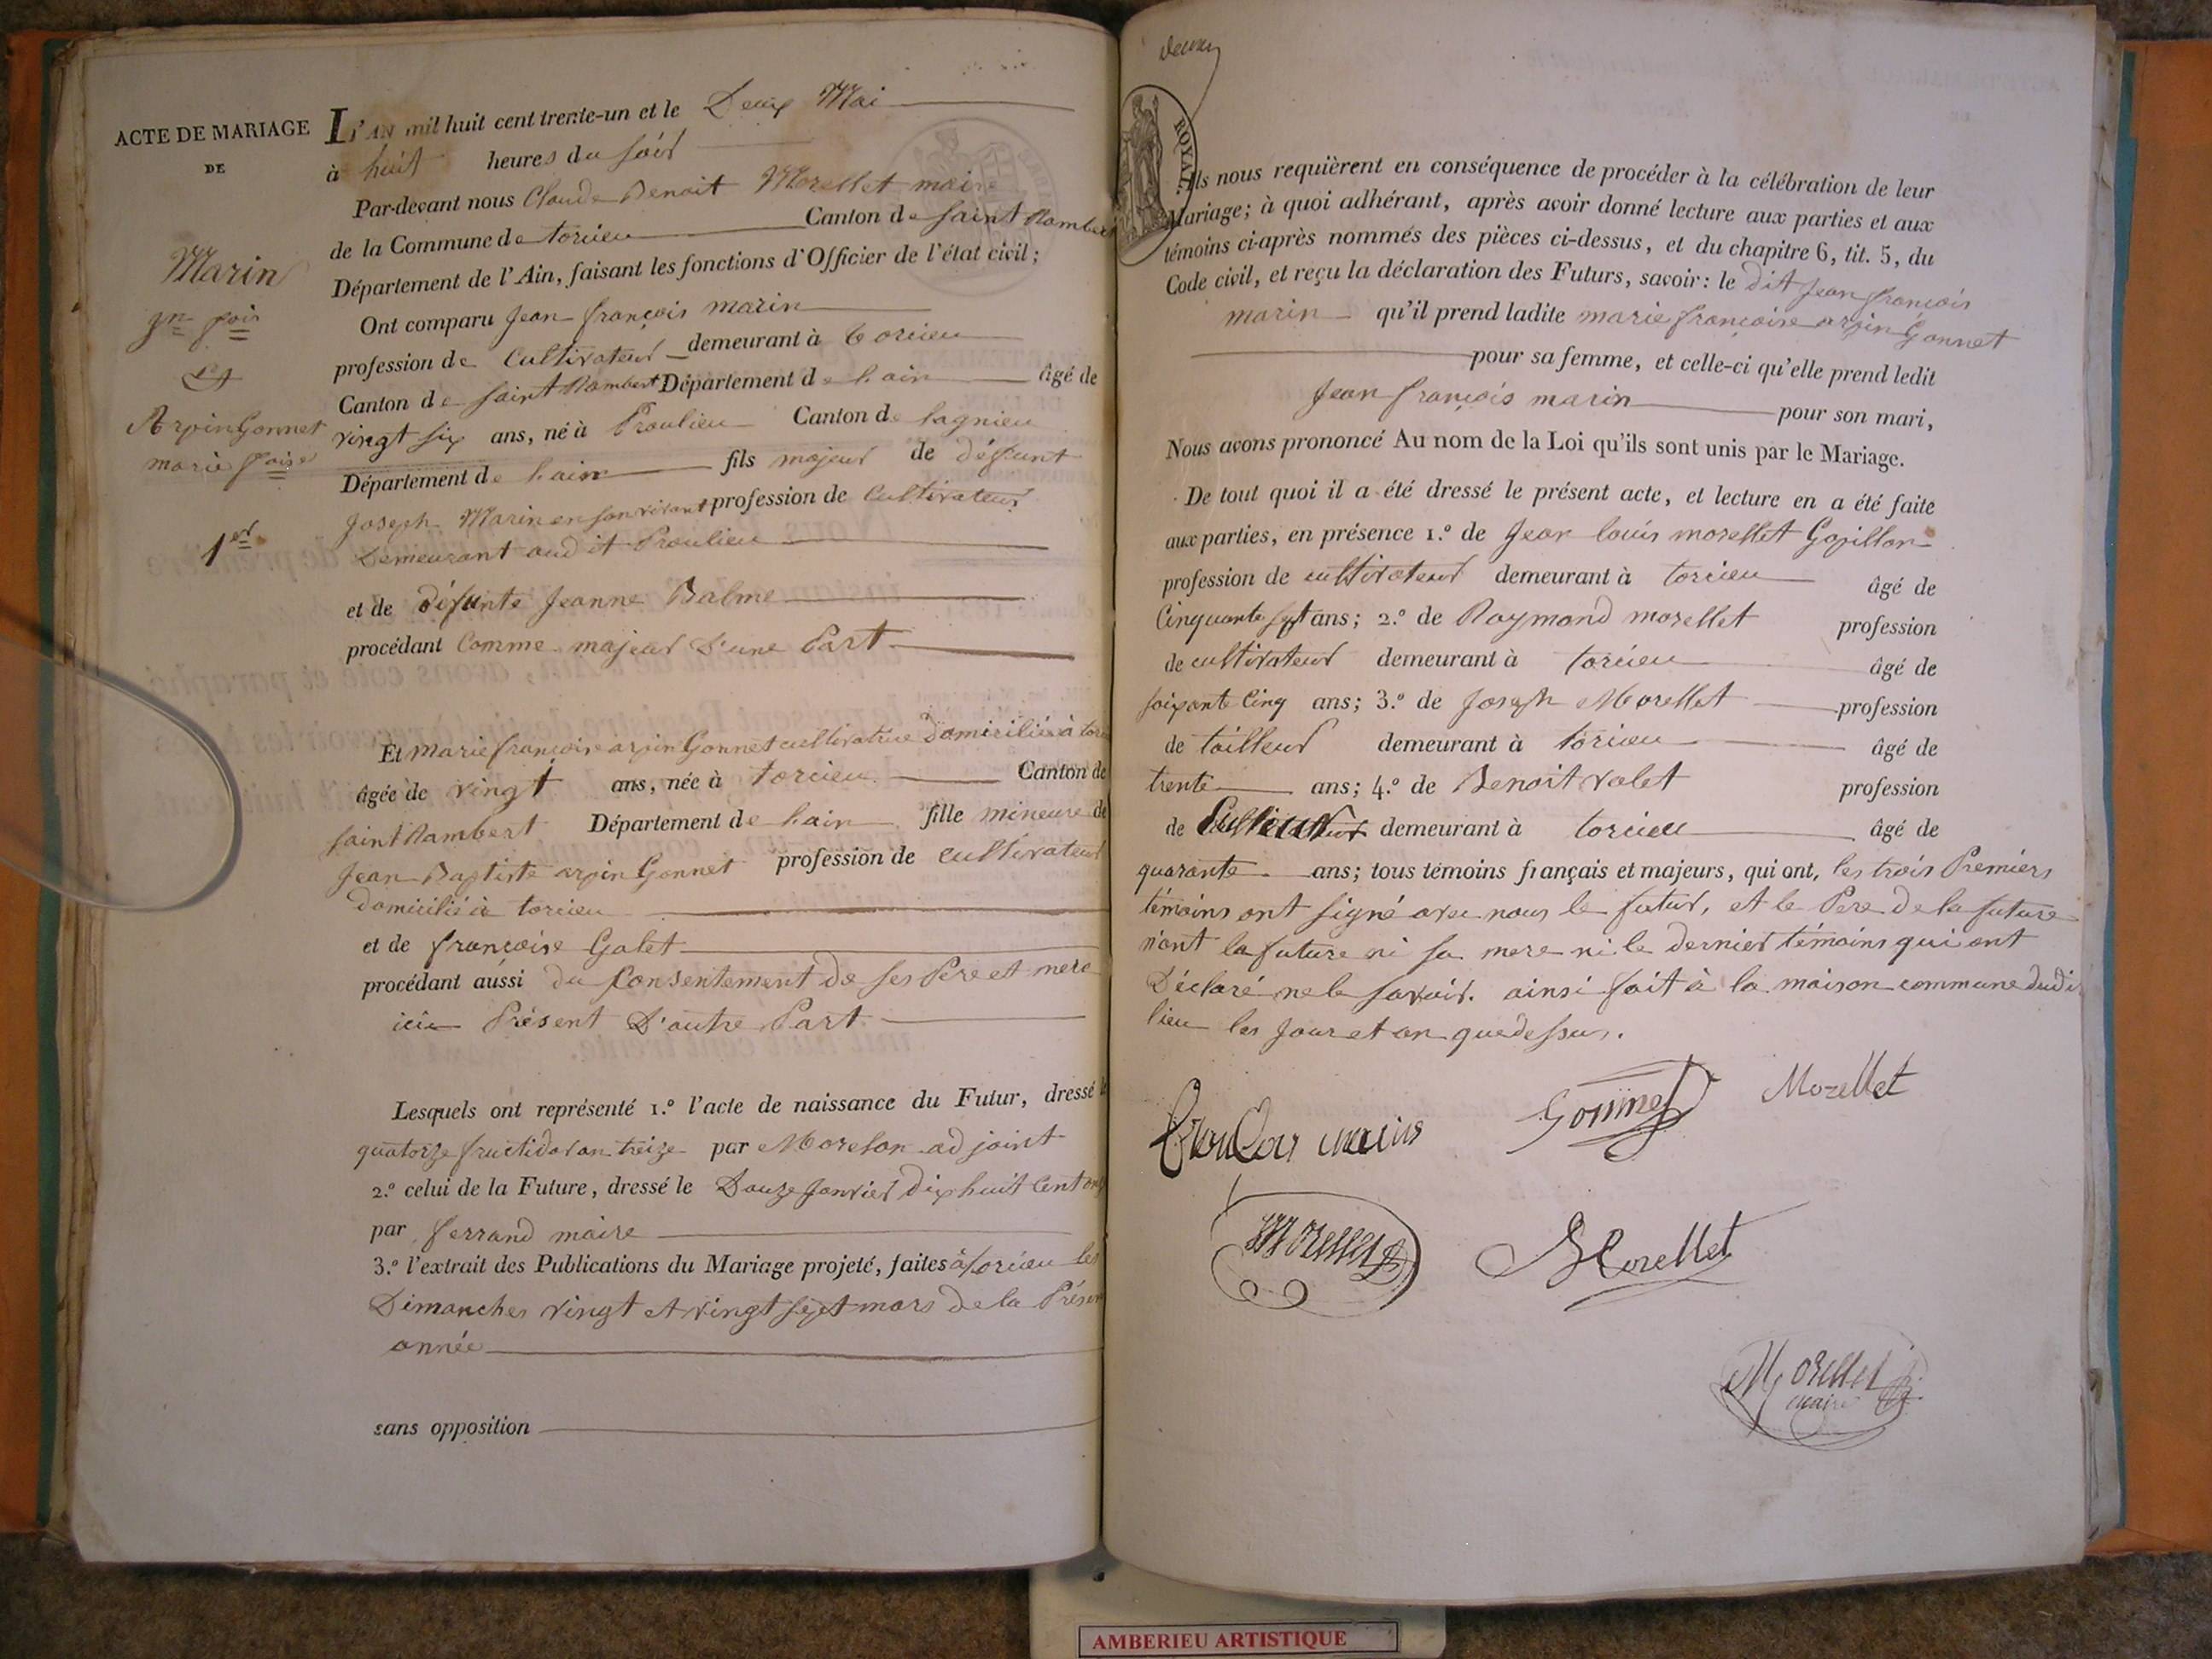 ACTE DE MARIAGE
DE
Marin
jn fois
et
Arpin Gonnet
marie foise
1er
L'AN mil huit cent trente-un et le Deux Mai
à huit heures du soir
Par-devant nous Claude Benoit Morellet maire
de la Commune de torcieu Canton de saint Rambert
Département de l'Ain, faisant les fonctions d'Officier de l'état civil;
Ont comparu Jean françois marin
profession de Cultivateur demeurant à torcieu
Canton de saint Rambert Département de lain âgé de
vingt six ans, né à Proulieu Canton de lagnieu
Département de lain fils majeur de défunt
Joseph Marin en son vivant profession de Cultivateur
Demeurant audit Proulieu
et de défunte Jeanne Balme
procédant Comme majeur d'une Part
Et marie françoise arpin Gonnet cultivatrice domiciliée à torcieu
âgée de vingt ans, née à torcieu Canton de
saint Rambert Département de lain fille mineure de
Jean Baptiste arpin Gonnet profession de cultivateur
domicilié à torcieu
et de françoise Galet
procédant aussi du Consentement de ses Pere et mere
ici Présent D'autre Part
Lesquels ont représenté 1.º l'acte de naissance du Futur, dressé le
quatorze fructidor an treize par Morelon adjoint
2.º celui de la Future, dressé le Douze Janvier dix huit Cent onze
par ferrand maire
3.º l'extrait des Publications du Mariage projeté, faites à torcieu les
Dimanches vingt et vingt sept mars de la Présente
année
sans opposition
deux
ROYAL.
Ils nous requièrent en conséquence de procéder à la célébration de leur
Mariage; à quoi adhérant, après avoir donné lecture aux parties et aux
témoins ci-après nommés des pièces ci-dessus, et du chapitre 6, tit. 5, du
Code civil, et reçu la déclaration des Futurs, savoir: le dit Jean françois
marin qu'il prend ladite marie françoise arpin Gonnet
pour sa femme, et celle-ci qu'elle prend ledit
Jean françois marin pour son mari,
Nous avons prononcé Au nom de la Loi qu'ils sont unis par le Mariage.
De tout quoi il a été dressé le présent acte, et lecture en a été faite
aux parties, en présence 1.º de Jean louis morellet Gopillon
profession de cultivateur demeurant à torcieu âgé de
Cinquante sept ans; 2.º de Raymond morellet profession
de cultivateur demeurant à torcieu âgé de
soixante Cinq ans; 3.º de Joseph Morellet profession
de tailleur demeurant à torcieu âgé de
trente ans; 4.º de Benoit valet profession
de demeurant à torcieu âgé de
quarante ans; tous témoins français et majeurs, qui ont, les trois Premiers
témoins ont signé avec nous le futur, et le Pere de la future
n'ont la future ni sa mere ni le dernier témoins qui ont
Déclaré ne le savoir. ainsi fait à la maison commune dudit
lieu les jour et an que dessus.
Gonnet
Morellet
Morellet
Morellet
Morellet
maire
AMBERIEU ARTISTIQUE